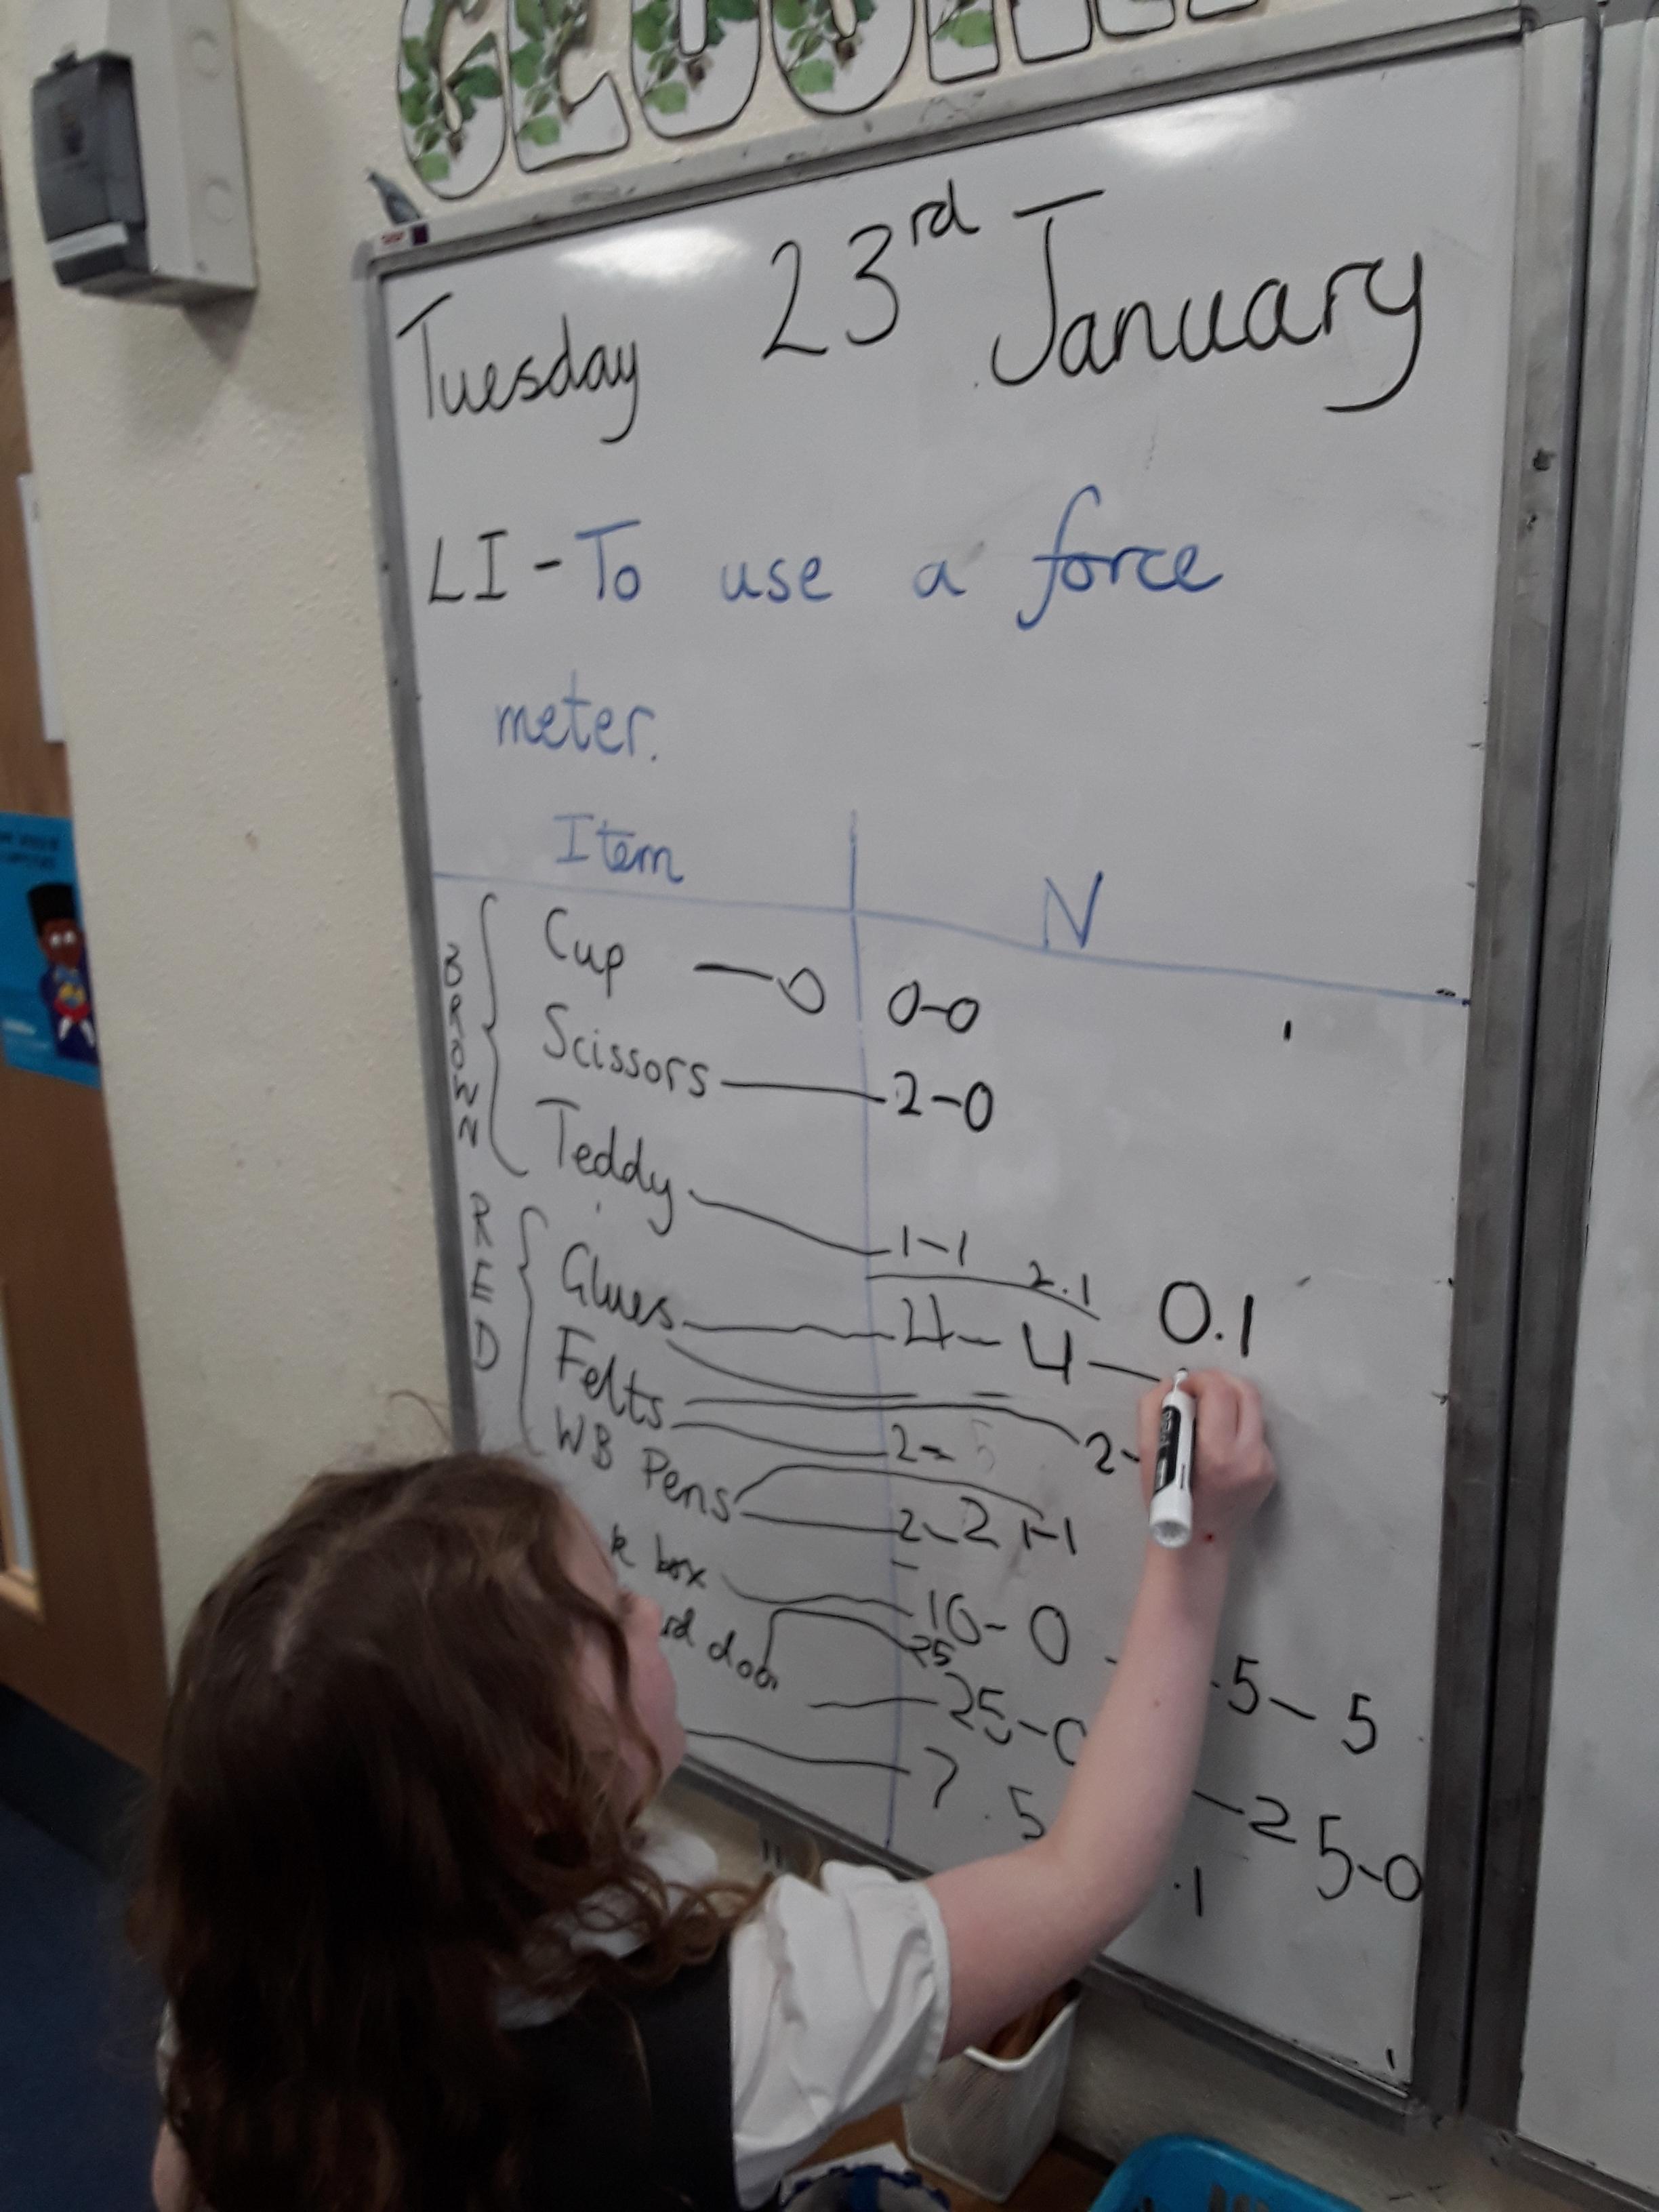 Tuesday 23rd January
LI - To use a force
meter.
Item N
BROWN
Cup — 0 0-0
Scissors — 2-0
Teddy — 1-1
2.1
RED
0.1
Glues — 4 - 4 —
Felts — 2 - 5 2-
WB Pens — 2-2 1-1
box — 10- 0 .5 - 5
door 25
25-0 - 25-0
7.5 .1